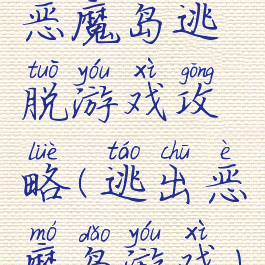 恶魔岛逃
tuō yóu xì gōng
脱游戏攻
lüè táo chū è
略(逃出恶
mó dǎo yóu xì
魔岛游戏)